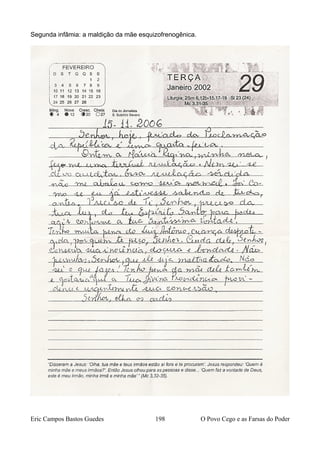 Segunda infâmia: a maldição da mãe esquizofrenogênica.
FEVEREIRO
D S T Q Q S S
1 2
3 4 5 6 7 8 9
10 11 12 13 14 15 16
17 18 19 20 21 22 23
24 25 26 27 28
Ming. Nova Cresc. Cheia
4 12 20 27
TERÇA
Janeiro 2002
29
Liturgia: 2Sm 6,12b-15.17-19 Sl 23 (24)
Mc 3,31-35
Dia do Jornalista
S. Sulpício Severo
15-11-2006
Senhor, hoje, feriado da Proclamação
da República é uma quarta-feira.
Ontem a Maria Regina, minha nora,
fez-me uma terrível revelação. Nem sei se
devo acreditar. Essa revelação sórdida
não me abalou como seria normal. Foi co-
mo se eu já estivesse sabendo de tudo,
antes. Preciso de Ti, Senhor, preciso da
tua luz, do teu Espírito Santo para poder
agir conforme a tua Santíssima Vontade!
Tenho muita pena do Luiz Antônio, criança desprote-
gida, por quem te peço, Senhor. Cuida dele, Senhor,
Conserva sua inocência, doçura e bondade. Não
permitas, Senhor, que ele seja maltratado. Não
sei o que fazer. Tenho pena da mãe dele também
e gostaria que a Tua Divina Providência provi-
dencie urgentemente sua conversão.
Senhor, olha os
"Disseram a Jesus: 'Olha, tua mãe e teus irmãos estão aí fora e te procuram'. Jesus respondeu: 'Quem é
minha mãe e meus irmãos?'. Então Jesus olhou para as pessoas e disse... 'Quem faz a vontade de Deus,
este é meu irmão, minha irmã e minha mãe'" (Mc 3,32-35).
Eric Campos Bastos Guedes 198 O Povo Cego e as Farsas do Poder